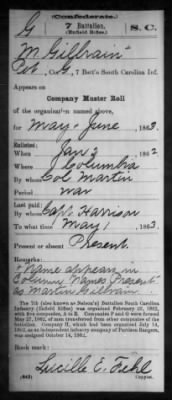 (Confederate.)
G 7 Battalion, S. C.
(Enfield Rifles.)
M. Gilbrain
Pvt, Co. G, 7 Batt'n South Carolina Inf.
Appears on
Company Muster Roll
of the organization named above,
for May & June, 1863.
Enlisted:
When Jan 2, 1862
Where Columbia
By whom Col Martin
Period war
Last paid:
By whom Capt Harrison
To what time May 1, 1863.
Present or absent Present
Remarks:
Name appears in
Column "Names Present"
as Martin Gilbrain
The 7th (also known as Nelson's) Battalion South Carolina
Infantry (Enfield Rifles) was organized February 22, 1862,
with five companies, A to E. Companies F and G were formed
May 27, 1862, of men transferred from other companies of the
battalion. Company H, which had been organized July 14,
1862, as an independent company of Partisan Rangers, was
assigned October 14, 1862.
Book mark:
Lucille E. Fehl
(642) Copyist.